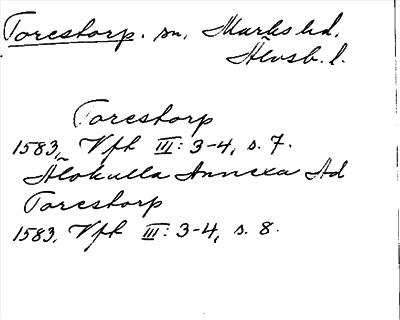 Torestorp. sn, Marks hd,
Älvsb. l.
Torestorp
1583, Vfh III: 3-4, s. 7.
Älokulla Annexa Ad
Torestorp
1583, Vfh III: 3-4, s. 8.